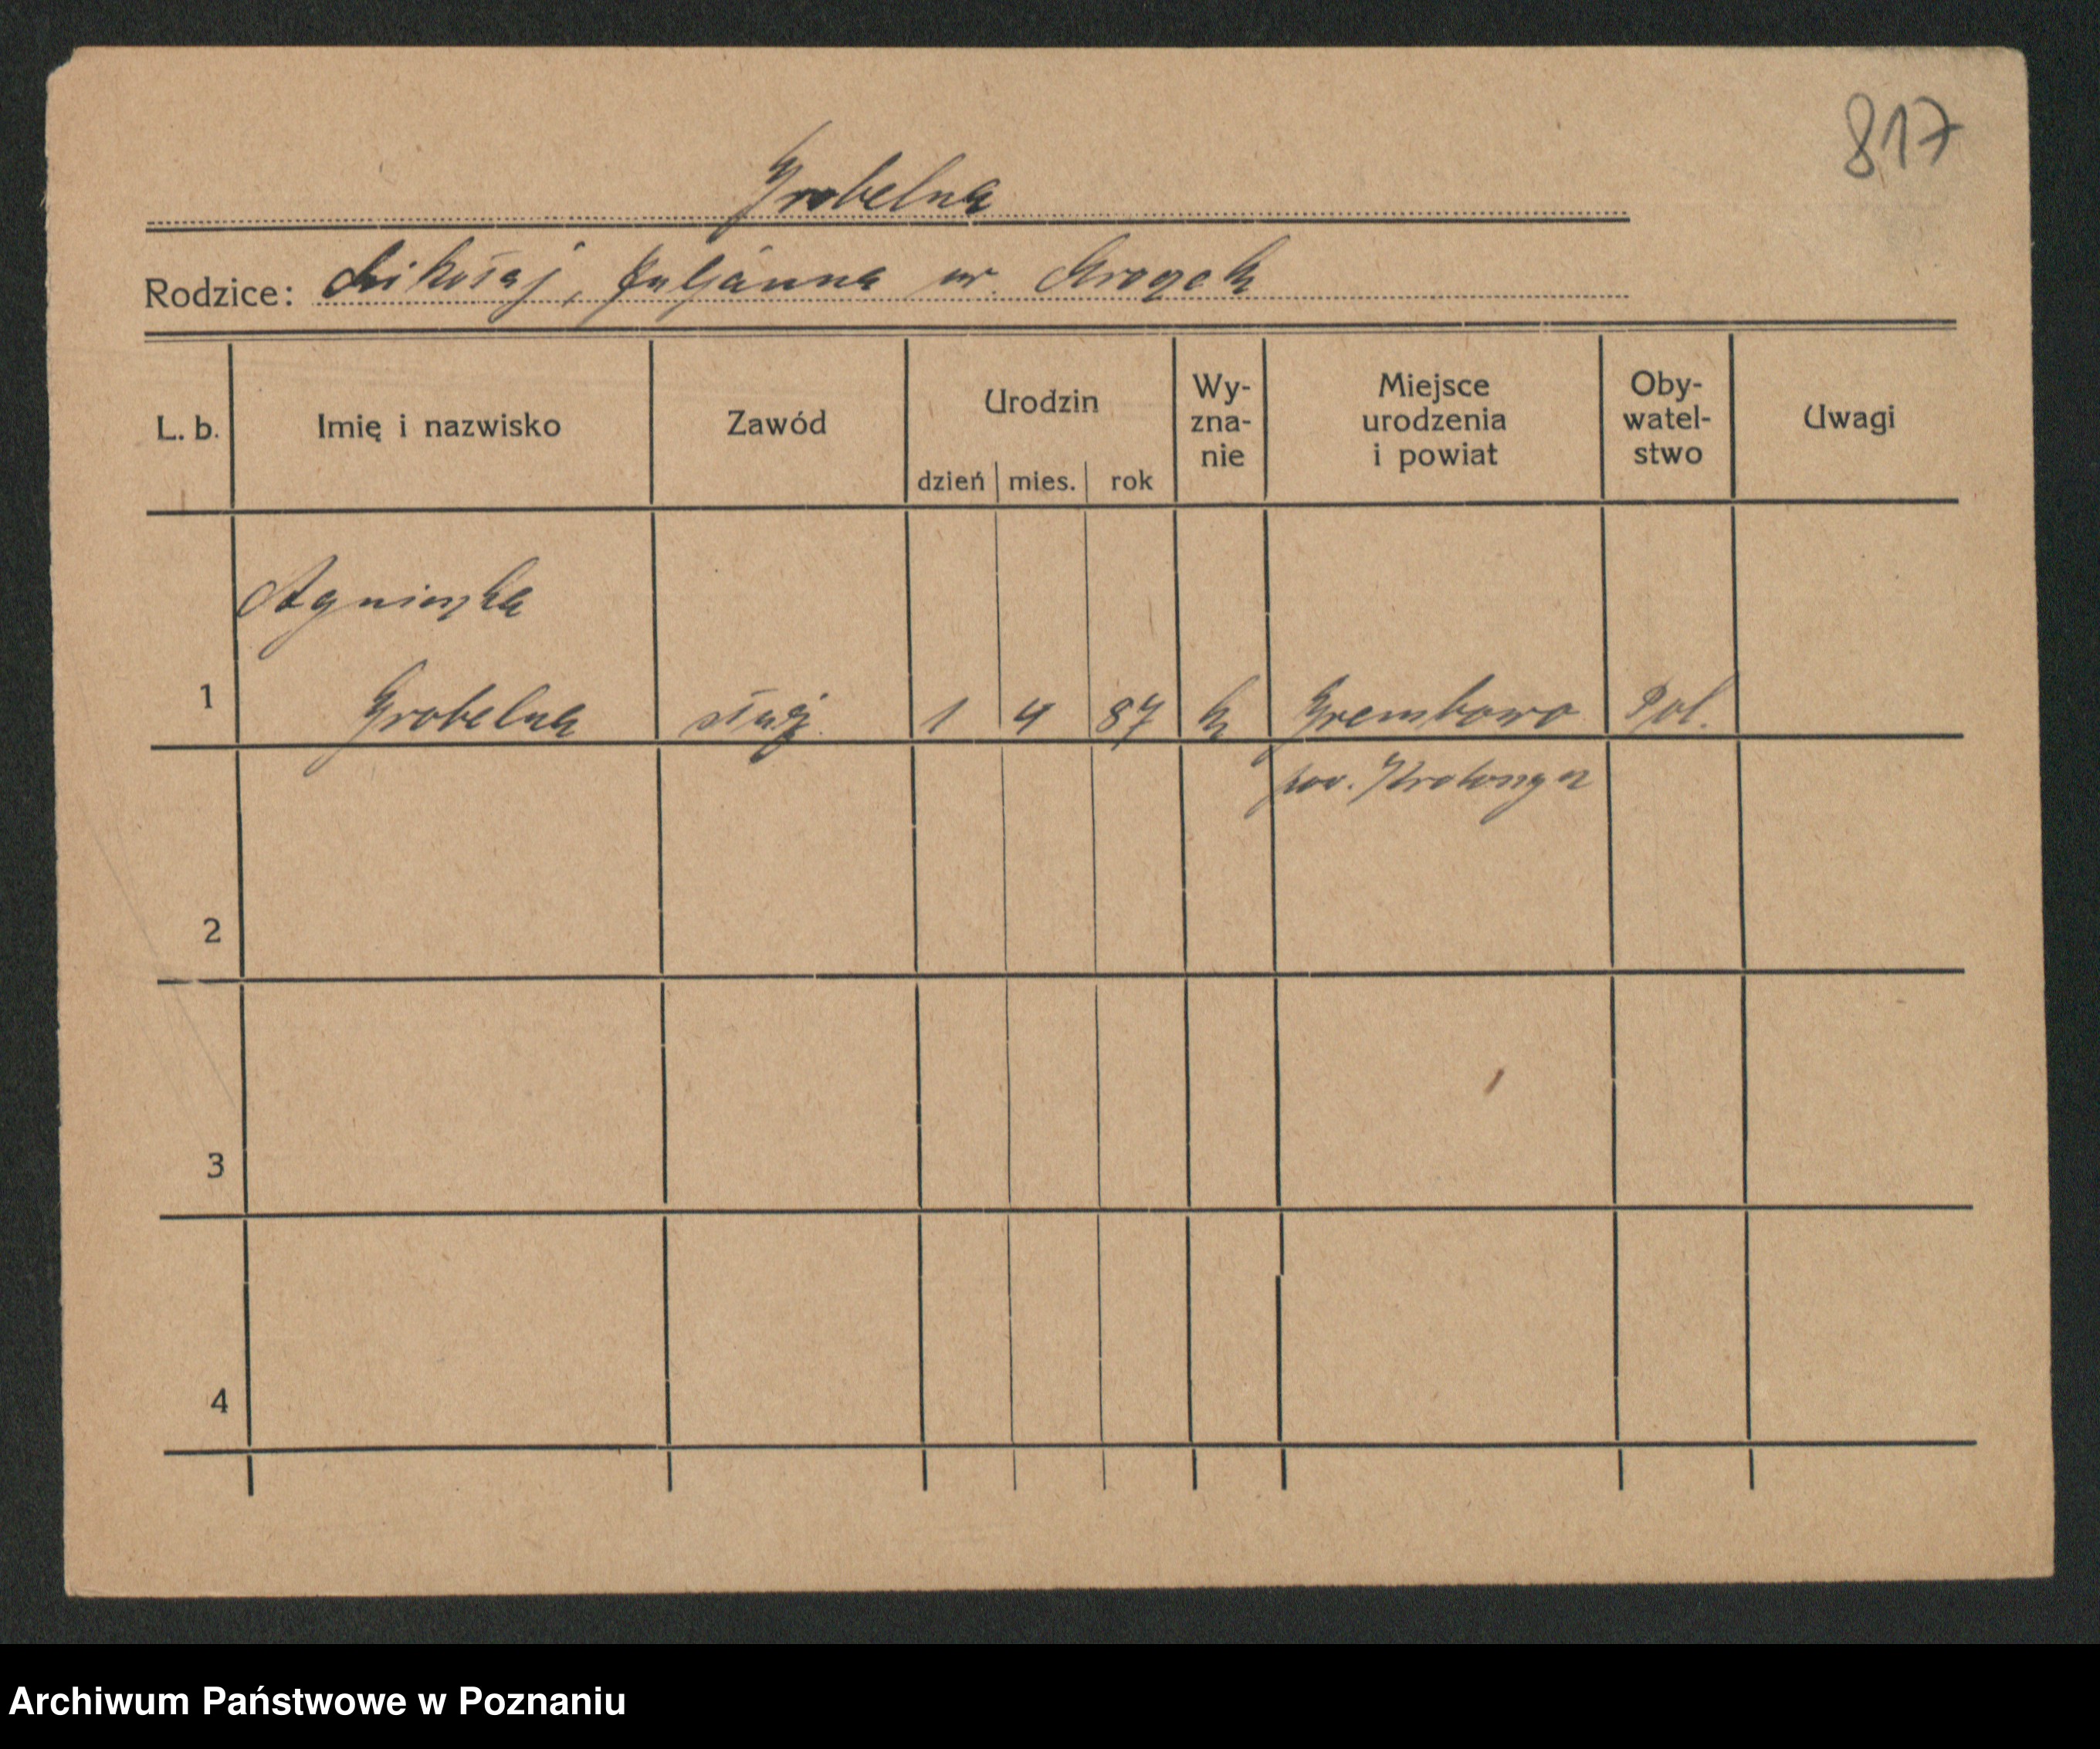 817
Grobelna
Rodzice: Mikołaj, Juljanna ur. Mrozek
L. b. Imię i nazwisko Zawód Urodzin dzień mies. rok Wy-zna-nie Miejsce urodzenia i powiat Oby-watel-stwo Uwagi
Agnieszka
1 Grobelna służ. 1 4 87 k Grembowo Pol.
pow.
2
3
4
Archiwum Państwowe w Poznaniu